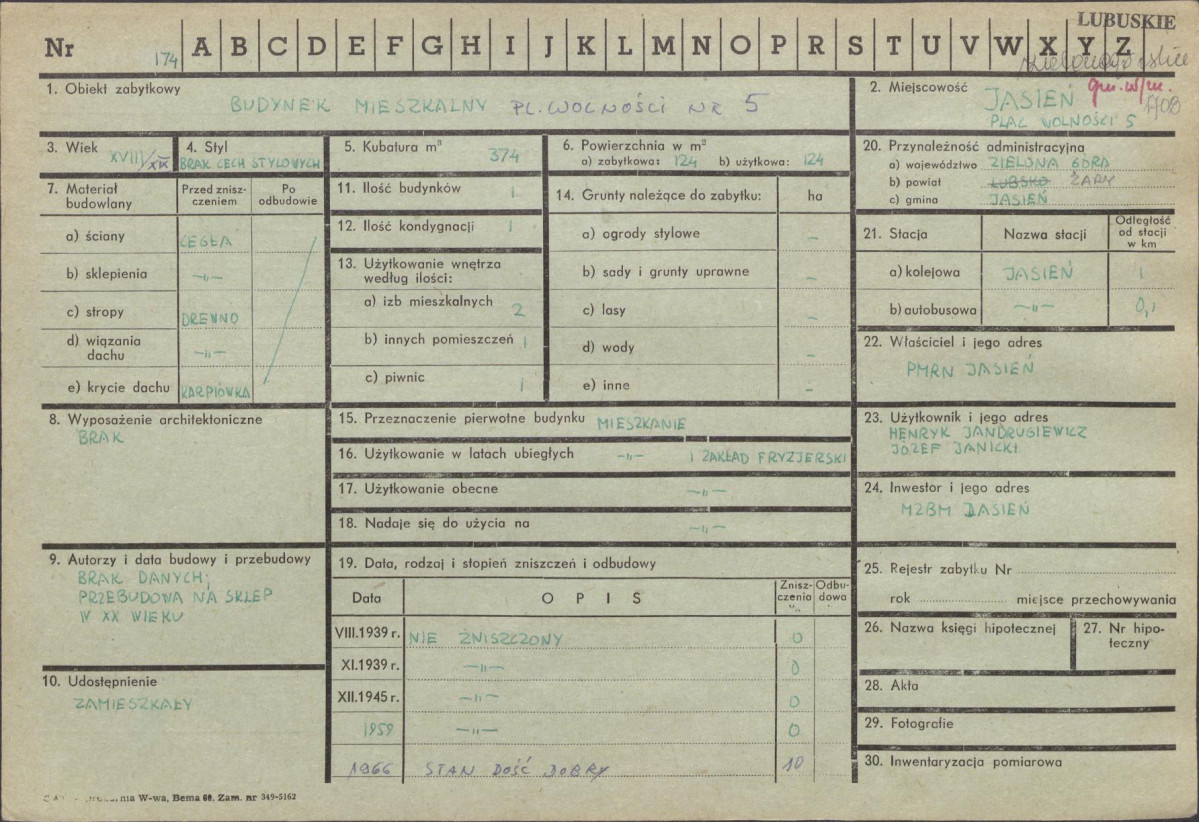 LUBUSKIE
Nr 174 A B C D E F G H I J K L M N O P R S T U V W X Y Z
1. Obiekt zabytkowy
BUDYNEK MIESZKALNY PL. WOLNOŚCI NR 5
2. Miejscowość JASIEŃ gm. w/m.
PLAC WOLNOŚCI 5
3. Wiek XVIII/XIX
4. Styl
BRAK CECH STYLOWYCH
5. Kubatura m³
374
6. Powierzchnia w m²
a) zabytkowa: 124 b) użytkowa: 124
7. Materiał budowlany
Przed zniszczeniem
Po odbudowie
a) ściany CEGŁA
b) sklepienia —„—
c) stropy DREWNO
d) wiązania dachu —„—
e) krycie dachu KARPIÓWKA
8. Wyposażenie architektoniczne
BRAK
9. Autorzy i data budowy i przebudowy
BRAK DANYCH;
PRZEBUDOWA NA SKLEP
W XX WIEKU
10. Udostępnienie
ZAMIESZKAŁY
11. Ilość budynków 1
12. Ilość kondygnacji 1
13. Użytkowanie wnętrza
według ilości:
a) izb mieszkalnych 2
b) innych pomieszczeń 1
c) piwnic 1
14. Grunty należące do zabytku: ha
a) ogrody stylowe –
b) sady i grunty uprawne –
c) lasy –
d) wody –
e) inne –
15. Przeznaczenie pierwotne budynku MIESZKANIE
16. Użytkowanie w latach ubiegłych —„— I ZAKŁAD FRYZJERSKI
17. Użytkowanie obecne —„—
18. Nadaje się do użycia na —„—
19. Data, rodzaj i stopień zniszczeń i odbudowy
Data OPIS Zniszczenia % Odbudowa
VIII.1939 r. NIE ZNISZCZONY 0
XI.1939 r. —„— 0
XII.1945 r. —„— 0
1959 —„— 0
1966 STAN DOŚĆ DOBRY 10
20. Przynależność administracyjna
a) województwo ZIELONA GÓRA
b) powiat LUBSKO ŻARY
c) gmina JASIEŃ
21. Stacja
Nazwa stacji
Odległość od stacji w km
a) kolejowa JASIEŃ 1
b) autobusowa —„— 0,1
22. Właściciel i jego adres
PMRN JASIEŃ
23. Użytkownik i jego adres
HENRYK JANDRUGIEWICZ
JÓZEF JANICKI
24. Inwestor i jego adres
MZBM JASIEŃ
25. Rejestr zabytku Nr
rok miejsce przechowywania
26. Nazwa księgi hipotecznej
27. Nr hipoteczny
28. Akta
29. Fotografie
30. Inwentaryzacja pomiarowa
W-wa, Bema 60. Zam. nr 349-5162